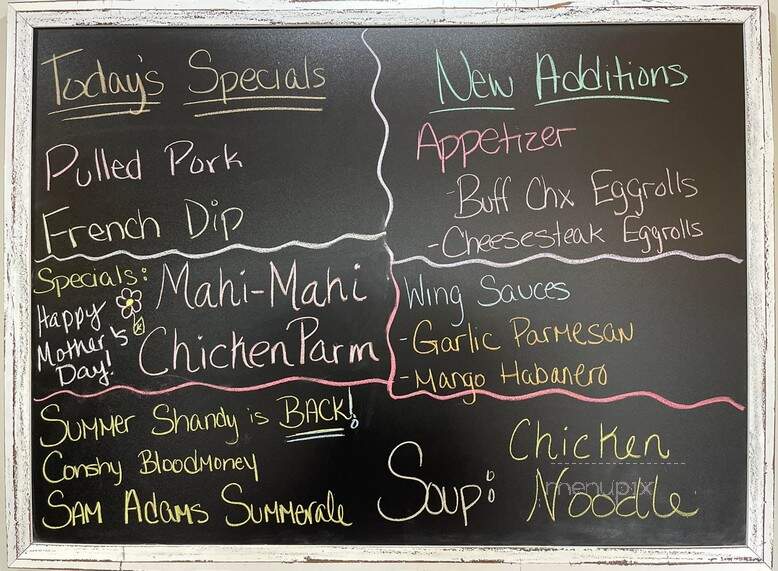 Today's Specials
Pulled Pork
French Dip
New Additions
Appetizer
-Buff Chx Eggrolls
-Cheesesteak Eggrolls
Specials:
Happy
Mother's
Day!
Mahi-Mahi
Chicken Parm
Wing Sauces
-Garlic Parmesan
-Mango Habanero
Summer Shandy is BACK!
Conshy Bloodmoney
Sam Adams Summerale
Soup:
Chicken
Noodle
menupix